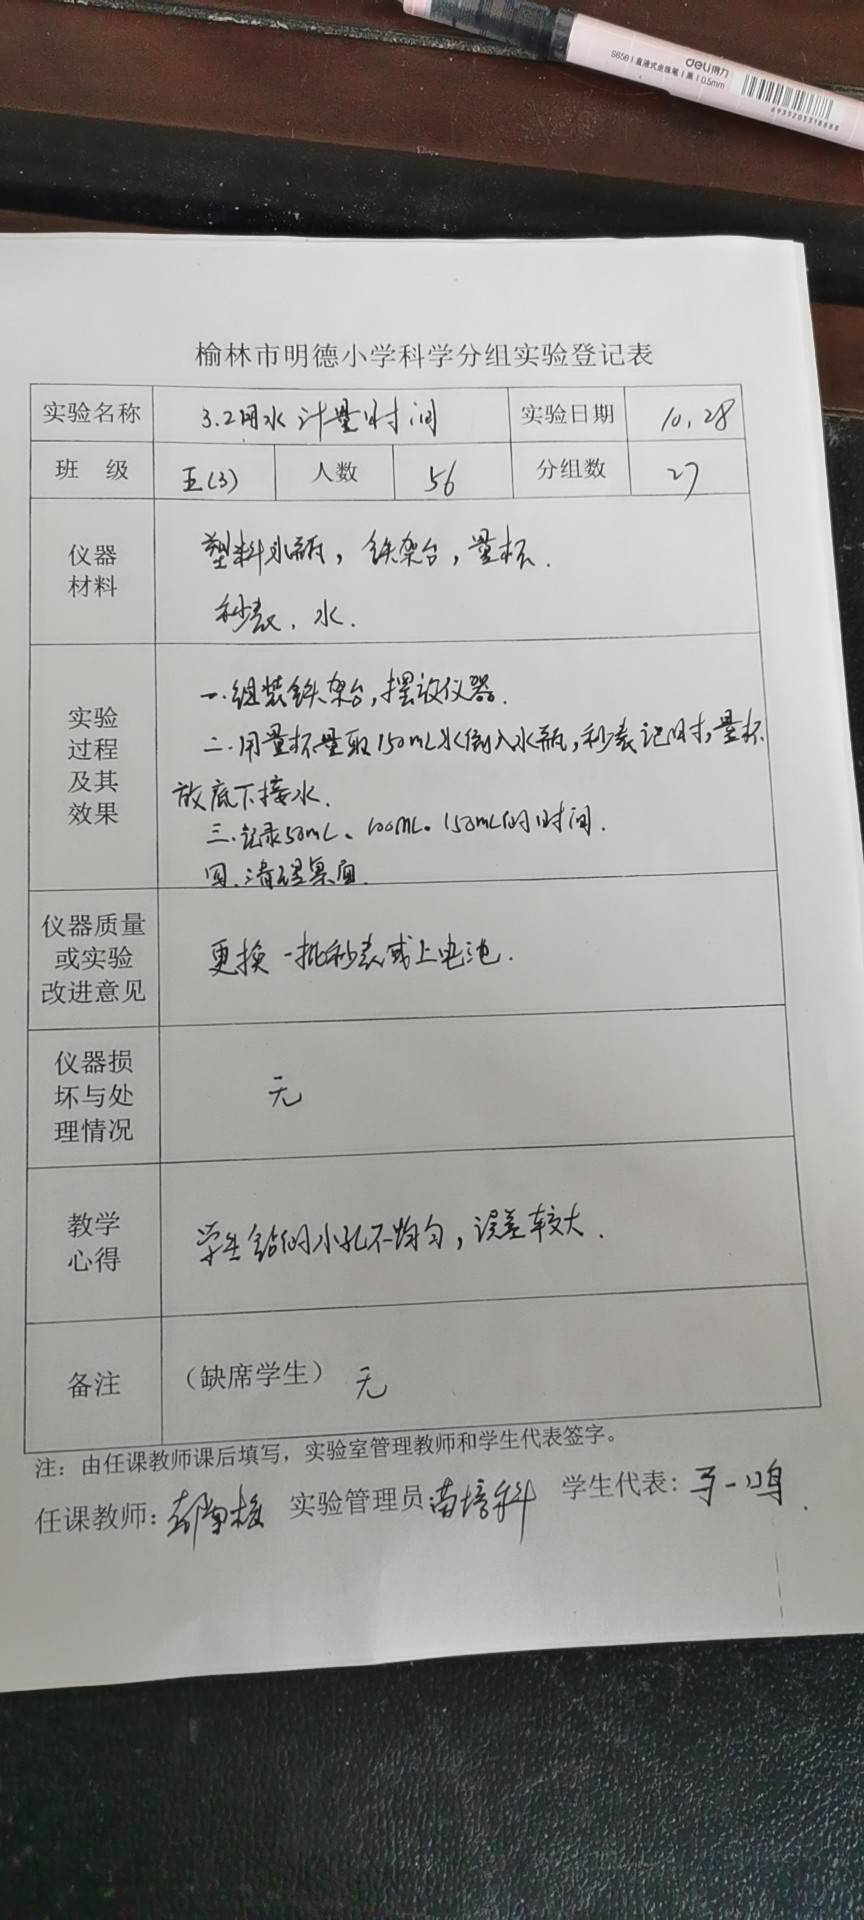 deli得力
S656 | 直液式走珠笔 | 黑 | 0.5mm
榆林市明德小学科学分组实验登记表
实验名称 3.2用水计量时间 实验日期 10.28
班 级 五(3) 人数 56 分组数 27
仪器材料 塑料水瓶，铁架台，量杯.
秒表、水.
实验过程及其效果 一.组装铁架台,摆放仪器.
二.用量杯量取150mL水倒入水瓶,秒表记时,量杯
放底下接水.
三.记录50mL、100mL、150mL的时间.
四.清理桌面.
仪器质量或实验改进意见 更换一批秒表或上电池.
仪器损坏与处理情况 无
教学心得 学生钻的小孔不均匀，误差较大.
备注 （缺席学生） 无
注：由任课教师课后填写，实验室管理教师和学生代表签字。
任课教师: 实验管理员 苗培科 学生代表: 一鸣